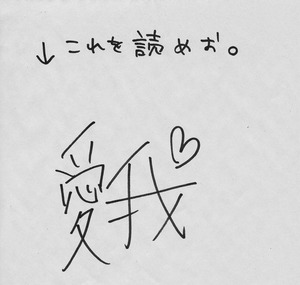 ↓これを読めお。
愛我♡